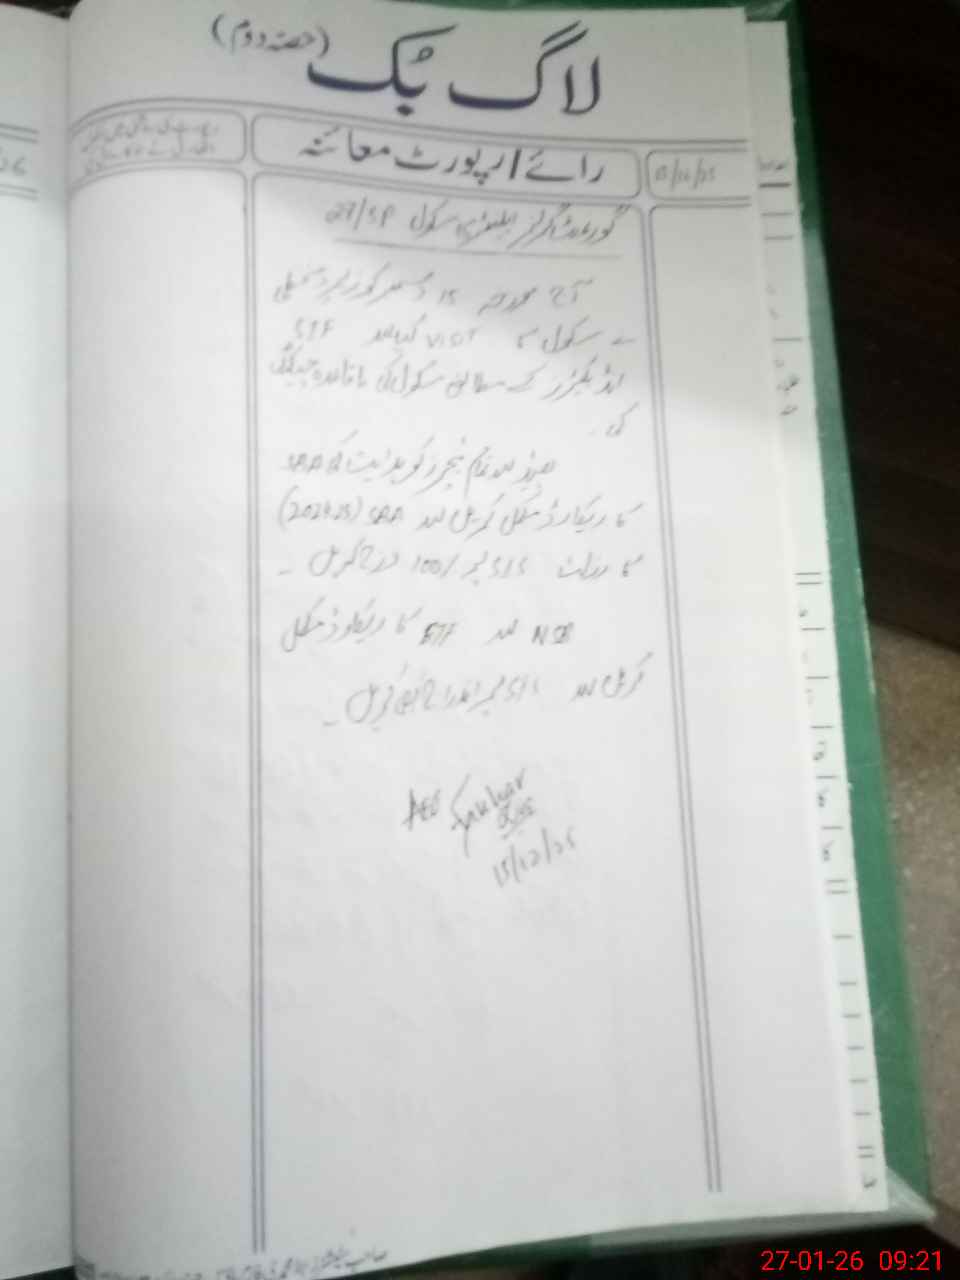 لاگ بک (حصہ دوم)
رائے / رپورٹ معائنہ
15/12/25
گورنمنٹ گرلز ایلیمنٹری سکول 27/SP
آج مورخہ 15 دسمبر کو
سکول کا VISIT کیا اور STF
انڈیکیٹرز کے مطابق سکول کی باقاعدہ چیکنگ
کی۔
ہیڈ اور تمام ٹیچرز کو ہدایت کی SBA
کا ریکارڈ مکمل کریں اور SBA (2024-25)
کا رزلٹ SIS پر 100% درج کریں ۔
NSB اور FTF کا ریکارڈ مکمل
کریں اور SIS پر اندراج بھی کریں ۔
AEO
15/12/25
27-01-26 09:21